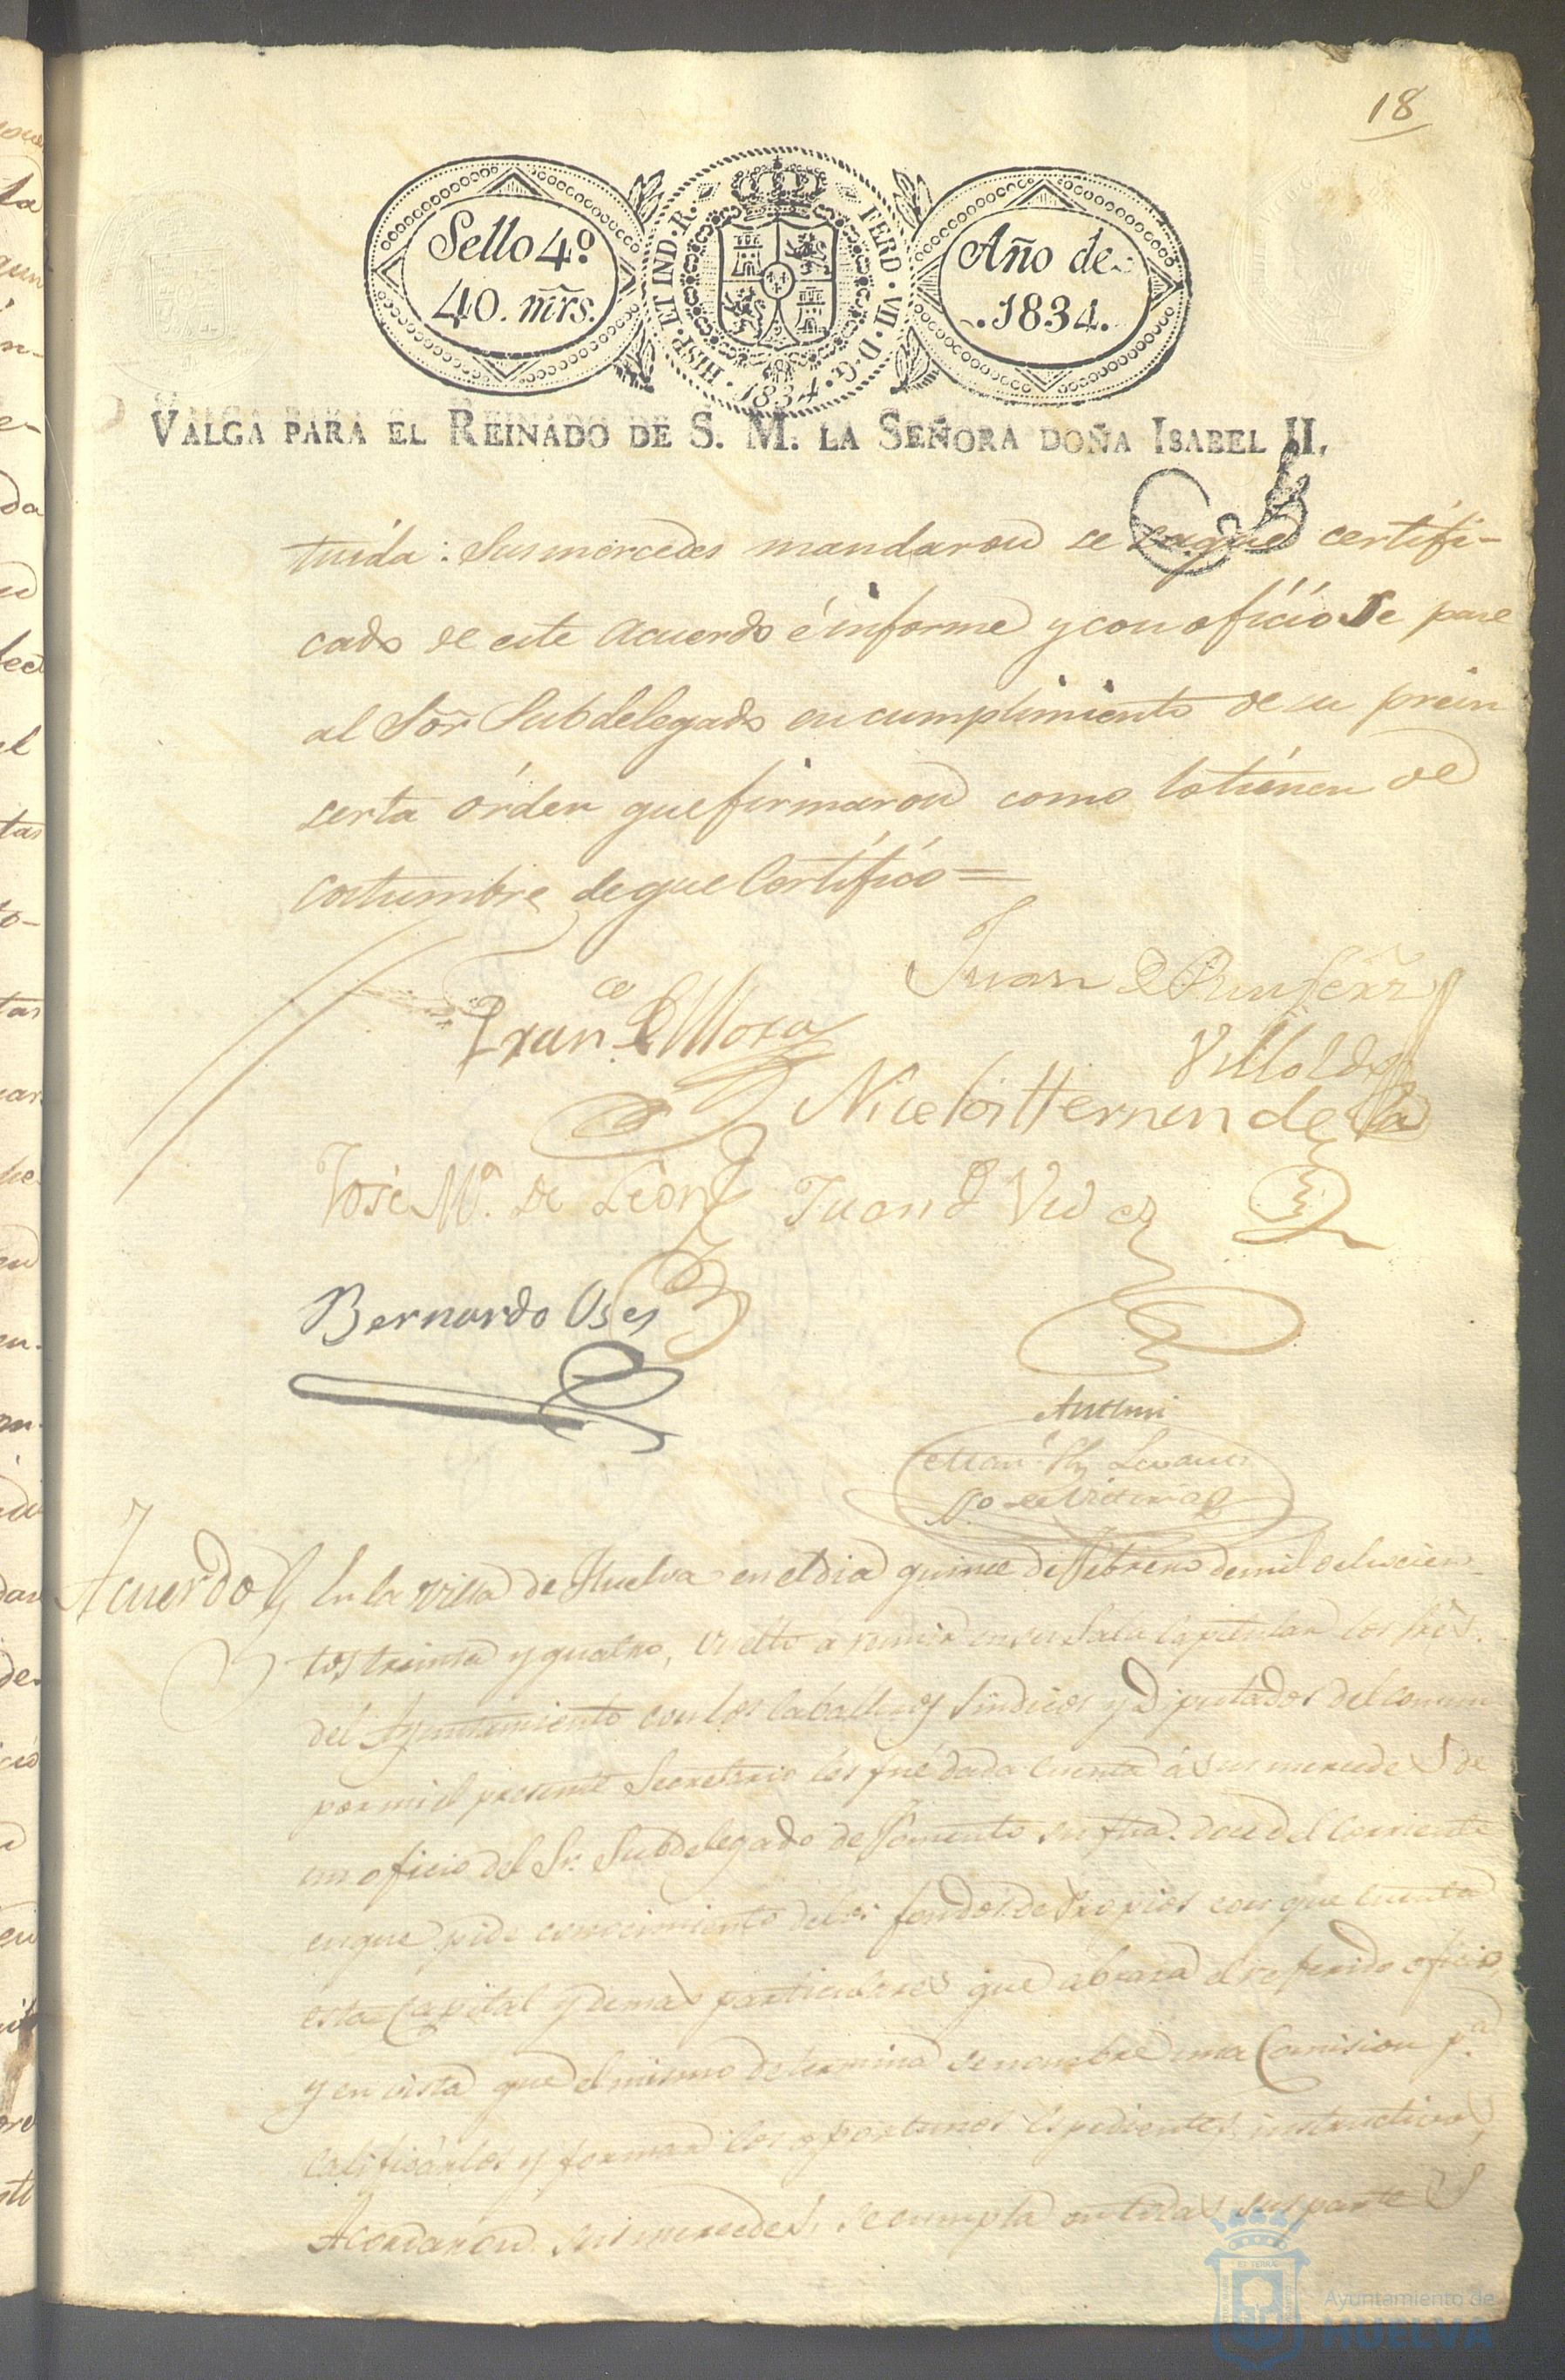 18
Sello 4º
40. mrs.
HISP. ET IND. R. FERD. VII. D. G. 1834.
Año de
.1834.
VALGA PARA EL REINADO DE S. M. LA SEÑORA DOÑA ISABEL II.
tuida: Sus mercedes mandaron se saque certifi-
cado de este acuerdo é informe y con oficio se pase
al Sõr Subdelegado en cumplimiento de su prein
serta órden que firmaron como lo tienen de
costumbre de que Certifico =
Juan
Franco Mora
Villolds
Hernen de la
José Mª. de Leon
Juan Vides
Bernardo Oses
Antemi
Acuerdo
En la Villa de Huelva en el dia quince de Febrero de mil ochocien
tos treinta y quatro, vuelto á reunir en su Sala Capitular los Sres.
del Ayuntamiento con los Caballeros Sindicos y Diputados del comun
por mi el presente Secretario les fué dada cuenta á sus mercedes de
un oficio del Sr. Subdelegado de Fomento su fha. doce del corriente
en que pide conocimiento de los fondos de Propios con que cuenta
esta Capital y demas particulares que abraza el referido oficio,
y en vista que el mismo determina se nombre una Comision pª.
calificarlos y formar los oportunos espedientes instructivos,
Acordaron sus mercedes, se cumpla en todas sus partes
Ayuntamiento de
HUELVA